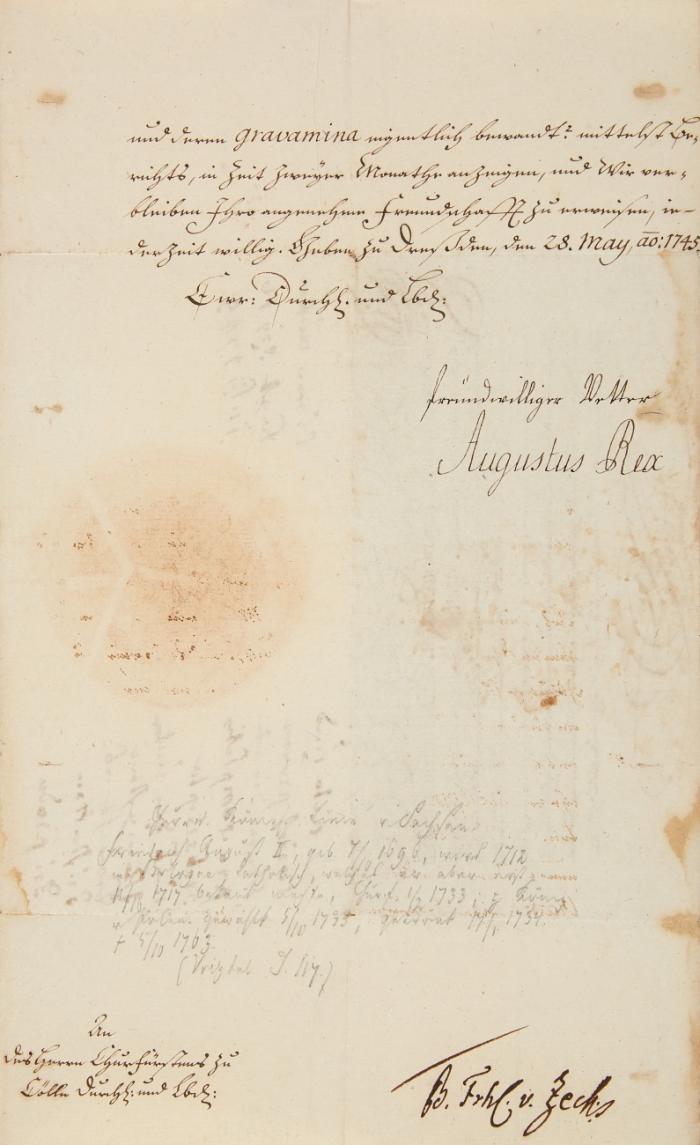 und deren gravamina eigentlich bewandt: mittelst Be-
richts, in Zeit Zweyer Monathe anzeigen, und Wir ver-
bleiben Ihro angenehme Freundschafft zu erweisen, ie-
derzeit willig. Geben zu Dreßden, den 28. May, ao: 1745.
Ewr: Durchl. und Lbd:
freundwilliger Vetter
Augustus Rex
König Linie v. Sachsen
Friedrich August II, geb. 7/ 1696, ward 1712
catholisch, welches aber erst
11/10 1717 bekannt wurde, Churf. 1/2 1733, z König
v Polen gewählt 5/10 1733, gekrönt 17/1 1734.
† 5/10 1763.
An
des Herrn Churfürstens zu
Cölln Durchl: und Lbd:
B. Frhl. v. Zech